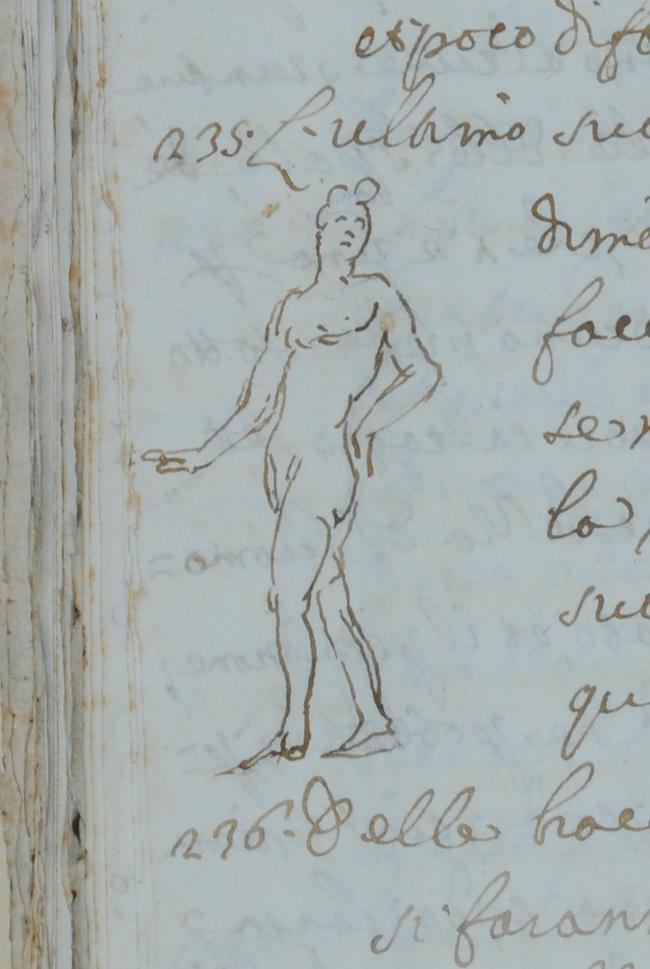 et poco diff
235. L'ultimo sue
dime
facc
se n
la
sue
qu
236. Delle brac
si farann